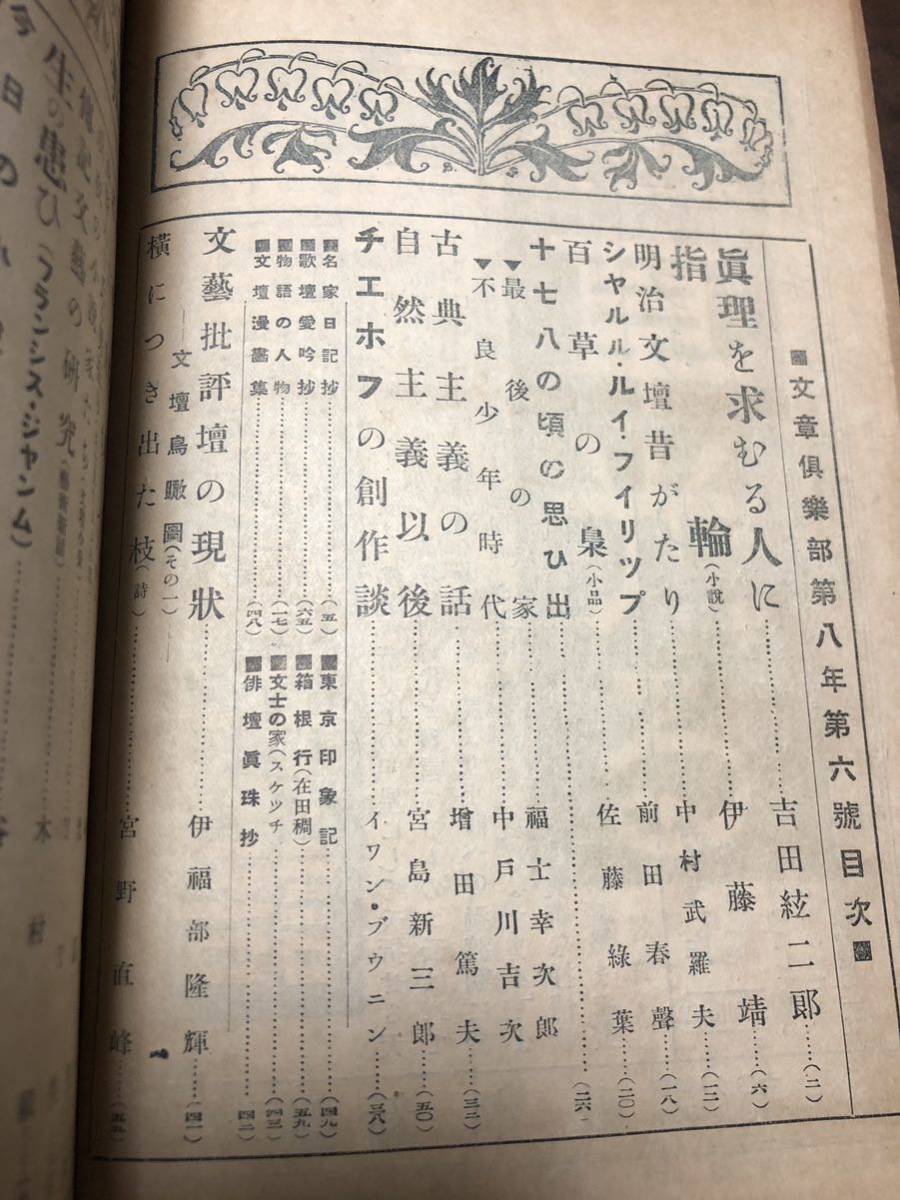 ■文章俱樂部第八年第六號目次■
眞理を求むる人に……吉田絃二郎……(二)
指輪(小說)……伊藤靖……(六)
明治文壇昔がたり……中村武羅夫……(一二)
シヤルル・ルイ・フイリツプ……前田春聲……(一八)
百草の梟(小品)……佐藤綠葉……(二〇)
十七八の頃の思ひ出……(二六)
▼最後の家……福士幸次郎
▼不良少年時代……中戶川吉次
古典主義の話……增田篤夫……(三二)
自然主義以後……宮島新三郎……(五〇)
チエホフの創作談……イワン・ブウニン……(三八)
■名家日記抄……(五)
■東京印象記……(四九)
■歌壇愛吟抄……(六五)
■箱根行(在田稠)……(五九)
■物語の人物……(一七)
■文士の家(スケツチ……(四三)
■文壇漫畵集……(四八)
■俳壇眞珠抄……四二
文藝批評壇の現狀……伊福部隆輝……(四一)
―文壇鳥瞰圖(その一)―
橫につき出た枝(詩)……宮野直峰……(五五)
生の患ひ(フランシス・ジャンム)
今日の